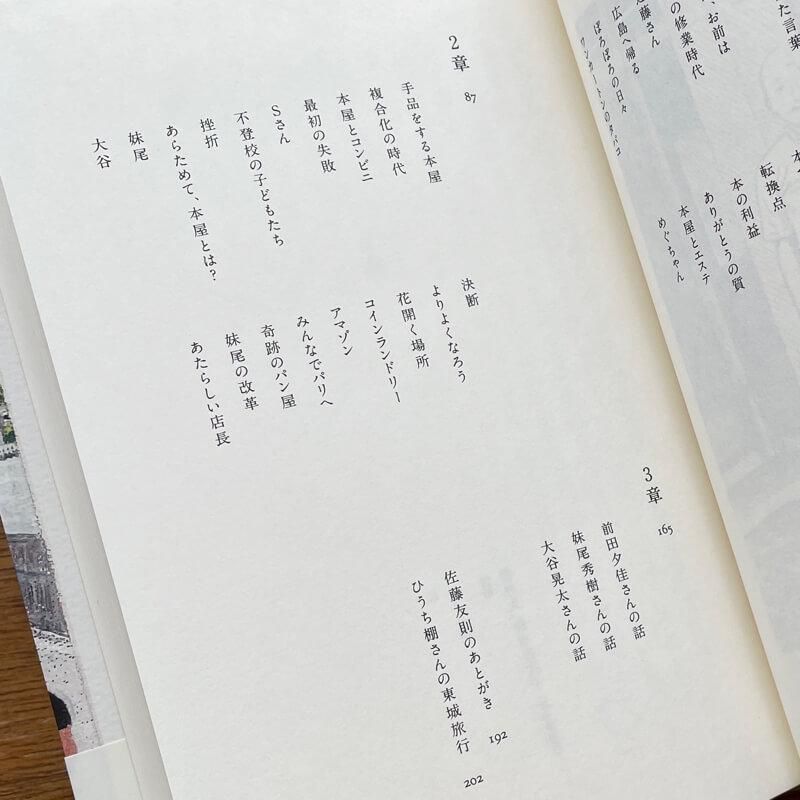 た言葉
、お前は
の修業時代
藤さん
広島へ帰る
ぼろぼろの日々
ワンカートンのタバコ
転換点
本の利益
ありがとうの質
本屋とエステ
めぐちゃん
2章
87
手品をする本屋
複合化の時代
本屋とコンビニ
最初の失敗
Sさん
不登校の子どもたち
挫折
あらためて、本屋とは?
妹尾
大谷
決断
よりよくなろう
花開く場所
コインランドリー
アマゾン
みんなでパリへ
奇跡のパン屋
妹尾の改革
あたらしい店長
3章
165
前田夕佳さんの話
妹尾秀樹さんの話
大谷晃太さんの話
佐藤友則のあとがき 192
ひうち棚さんの東城旅行 202